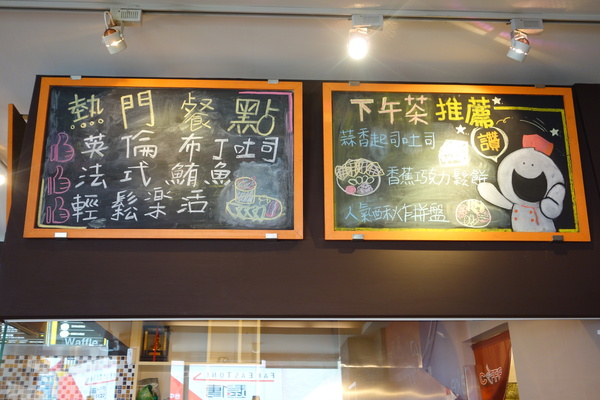 熱門餐點
英倫布丁吐司
法式鮪魚
輕鬆樂活
下午茶推薦
讚
蒜香起司吐司
香蕉巧克力鬆餅
人氣酥炸拼盤
Waffle